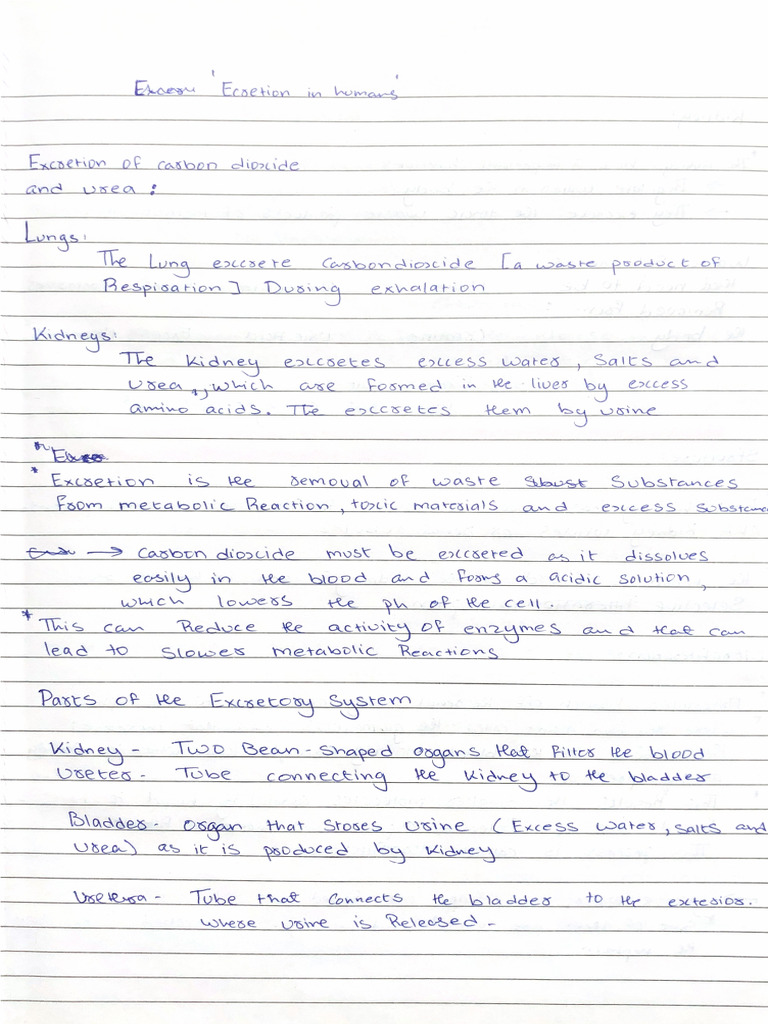 'Ecretion in humans'
Excretion of carbon dioxide
and urea :
Lungs:
The Lung excrete Carbondioxide [a waste product of
Respiration] During exhalation
Kidneys:
The Kidney excretes excess water, Salts and
urea, which are formed in the liver by excess
amino acids. The excretes them by urine
* Excretion is the removal of waste Substances
From metabolic Reaction, toxic materials and excess substance
→ Carbon dioxide must be excreted as it dissolves
easily in the blood and forms a acidic solution,
which lowers the ph of the cell.
* This can Reduce the activity of enzymes and that can
lead to slower metabolic Reactions
Parts of the Excretory System
Kidney - Two Bean-shaped organs that filter the blood
Ureter - Tube connecting the Kidney to the bladder
Bladder - organ that stores urine (Excess water, salts and
urea) as it is produced by Kidney
- Tube that connects the bladder to the exterior.
where urine is Released -